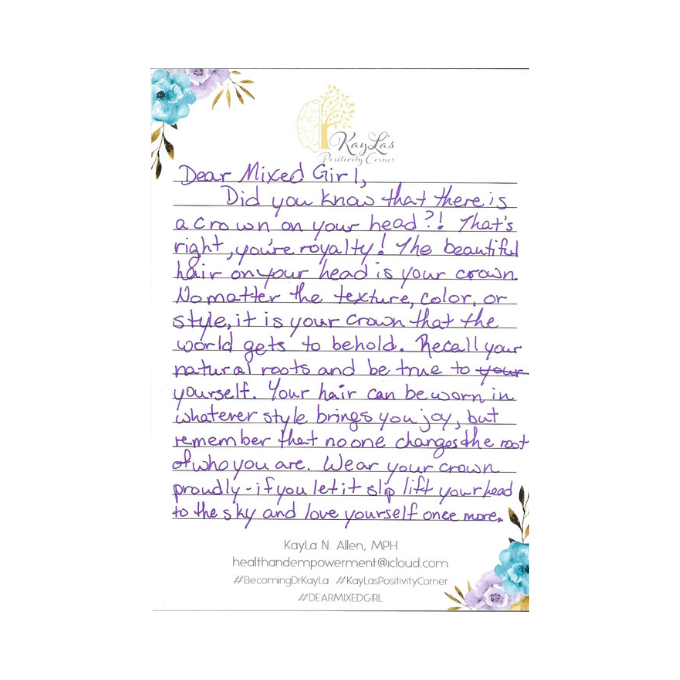 KayLa's
Positivity Corner
Dear Mixed Girl,
Did you know that there is
a crown on your head?! That's
right, you're royalty! The beautiful
hair on your head is your crown.
No matter the texture, color, or
style, it is your crown that the
world gets to behold. Recall your
natural roots and be true to your
yourself. Your hair can be worn in
whatever style brings you joy, but
remember that no one changes the root
of who you are. Wear your crown
proudly - if you let it slip lift your head
to the sky and love yourself once more.
KayLa N. Allen, MPH
healthandempowerment@icloud.com
#BecomingDrKayLa #KayLasPositivityCorner
#DEARMIXEDGIRL